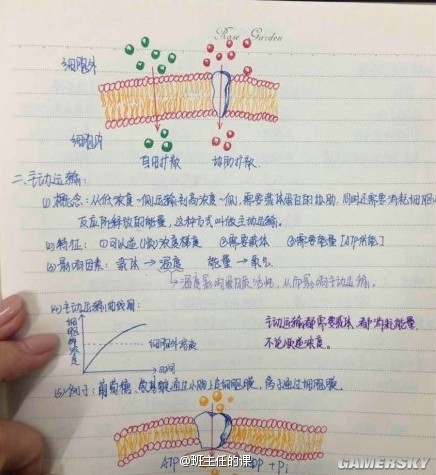 Rose Garden
细胞外
细胞内
自由扩散 协助扩散
二、主动运输:
(1) 概念:从低浓度一侧运输到高浓度一侧,需要载体蛋白的协助,同时还需要消耗细胞
反应所释放的能量,这种方式叫做主动运输。
(2) 特征: ①可以逆(低)浓度梯度 ②需要载体 ③需要能量[ATP供能]
(3) 影响因素: 载体→温度 能量→氧气
温度影响蛋白质活性,从而影响主动运输。
(4) 主动运输曲线图:
细胞内浓度
细胞外浓度
时间
主动运输都需要载体,都消耗能量,
不论浓度。
(5) 例子:葡萄糖、氨基酸通过小肠上皮细胞膜,离子通过细胞膜。
ATP ADP + Pi
@班主任的课
GAMERSKY